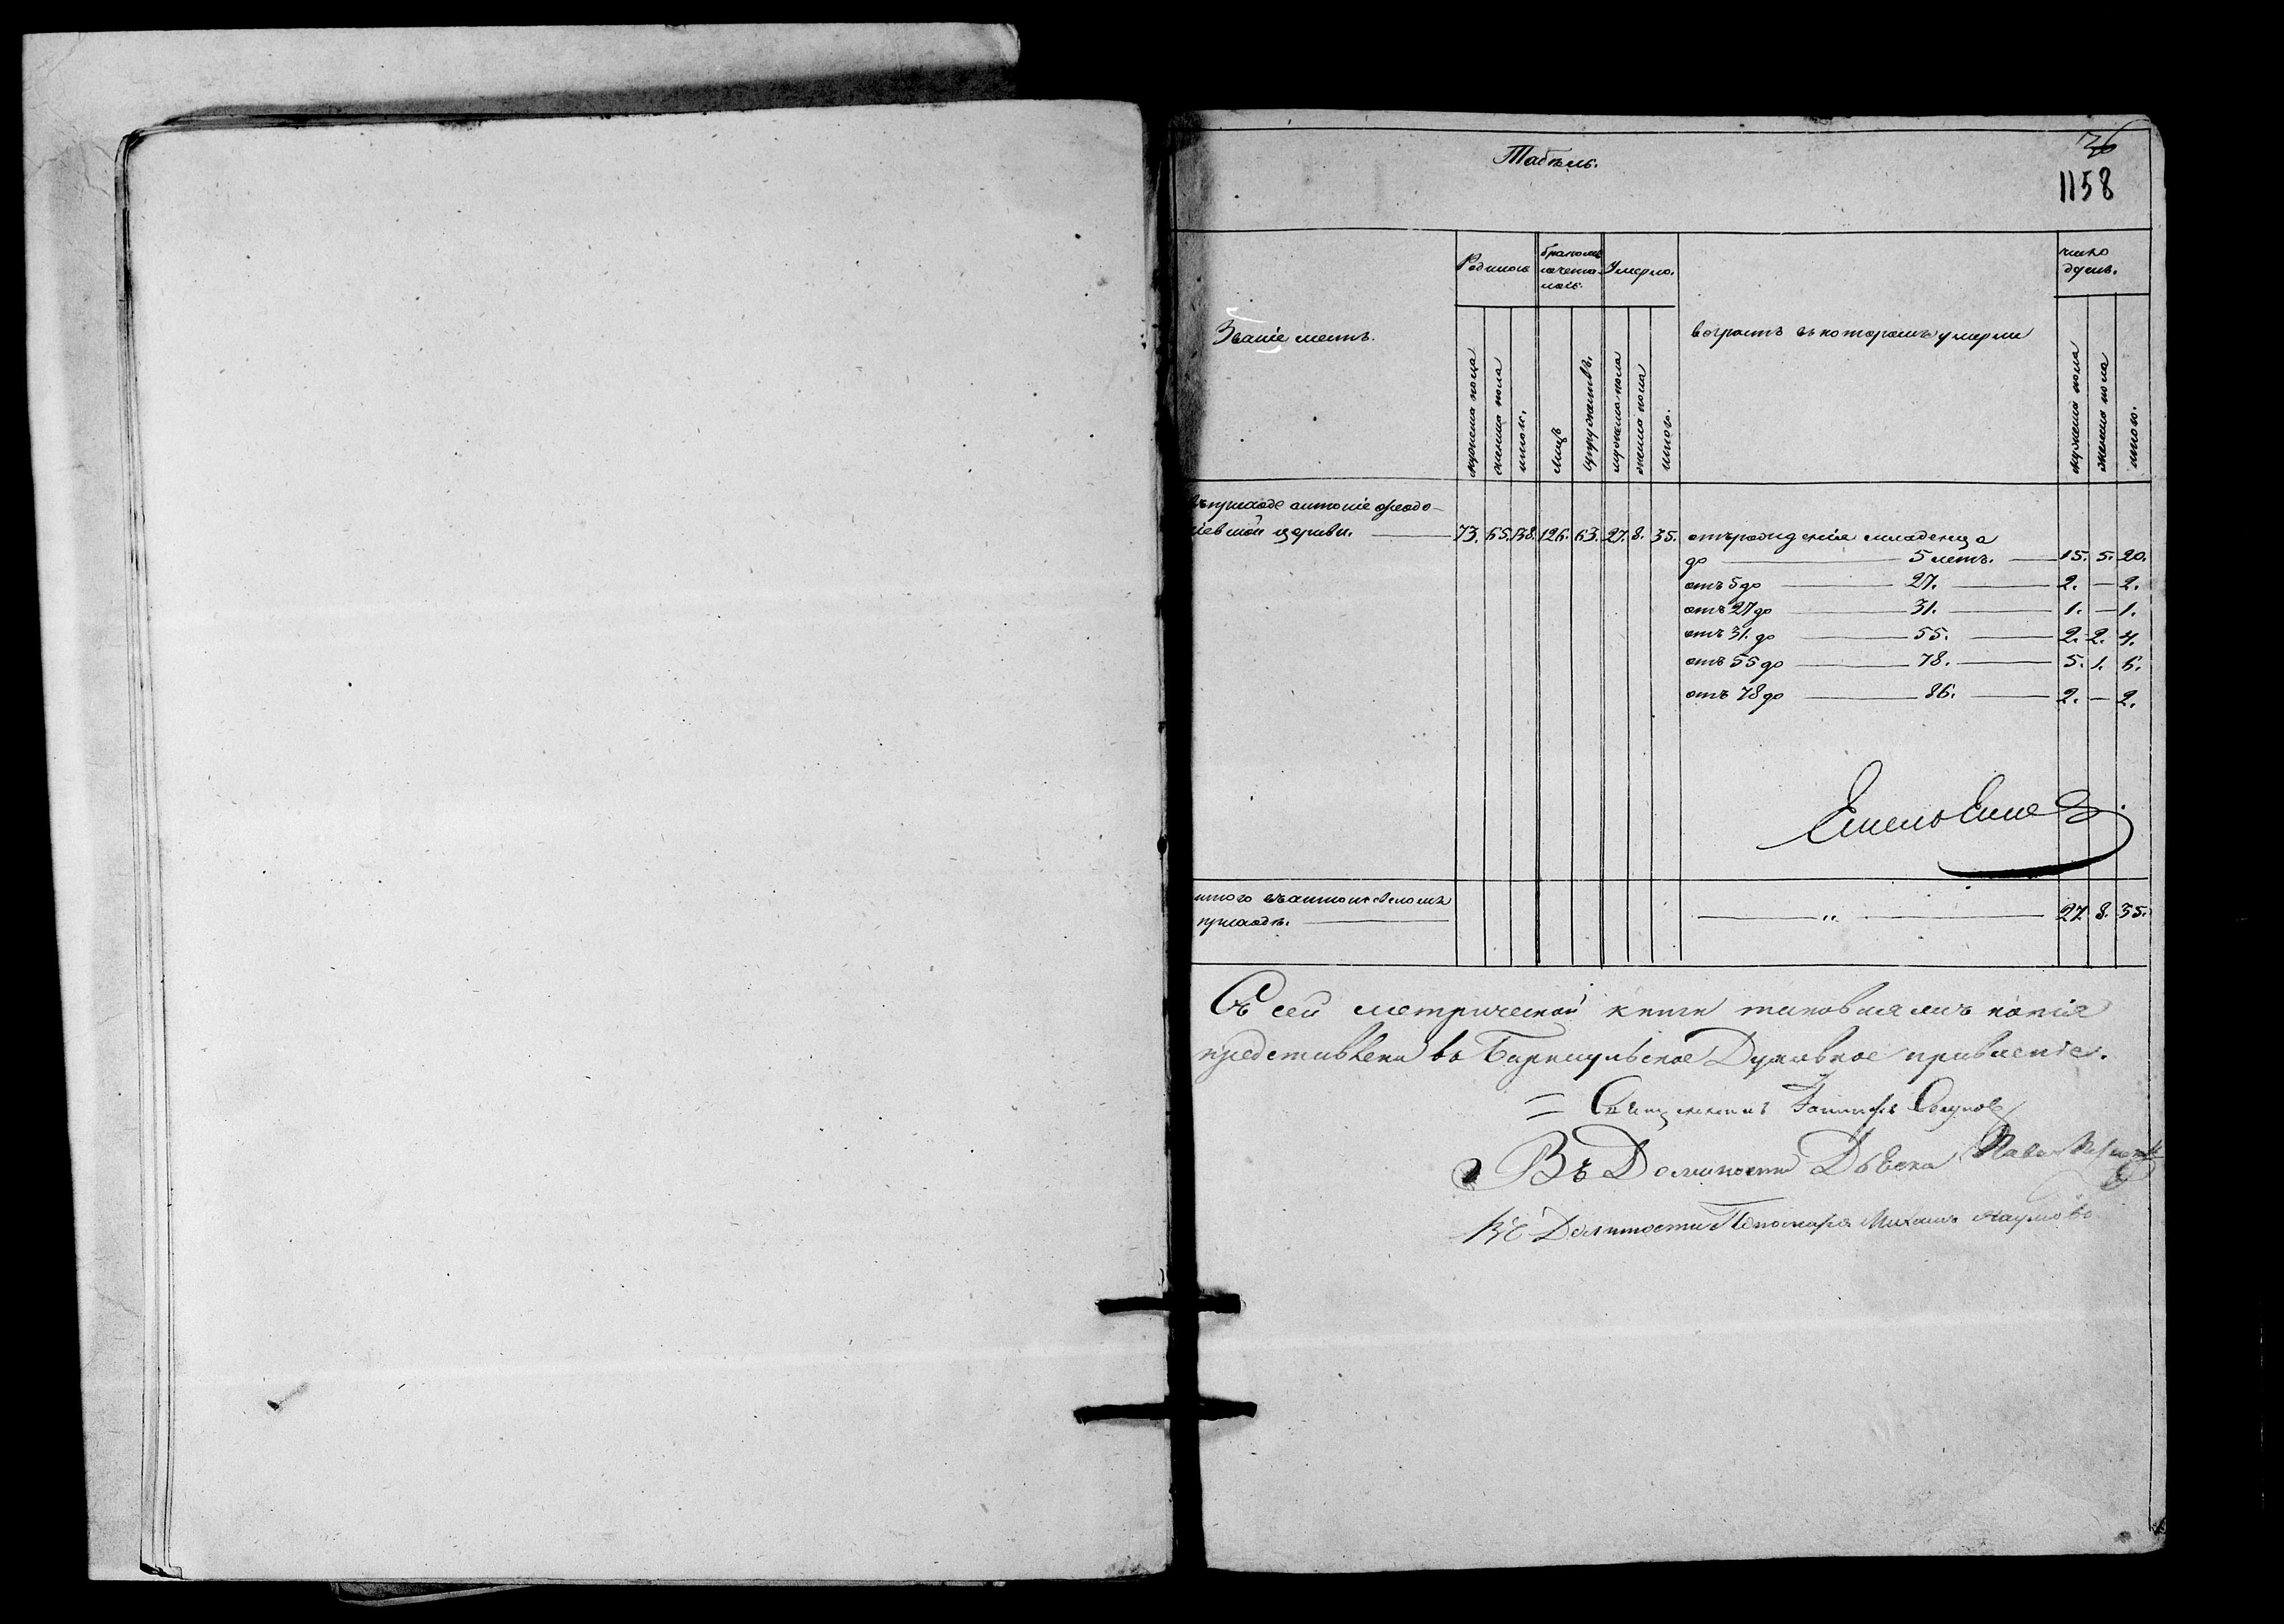 Табель.
36
1158
Званіе местъ.
Родилось
бракомъ сочеталось.
Умерло.
возрастъ въ которомъ умерли
число душъ.
мужеска пола
женска пола
итого.
лицъ
супружествъ.
мужеска пола
женска пола
итого.
мужеска пола
женска пола
итого.
въ приходе антоніе феодо-
сіевской церкви. 73. 65. 138. 126. 63. 27. 8. 35.
отъ рождения младенца
до 5 летъ. 15. 5. 20.
отъ 5 до 27. 2. — 2.
отъ 27 до 31. 1. — 1.
отъ 31. до 55. 2. 2. 4.
отъ 55 до 78. 5. 1. 6.
отъ 78 до 86. 2. — 2.
итого въ антоніевскомъ
приходѣ. „ 27. 8. 35.
Съ сей метрической книги таковая жъ копія
представлена въ Барнаульское Духовное правленіе.
Священникъ
Въ Должности Дьячка Павелъ
Въ Должности Пономаря Михаилъ Наумовъ